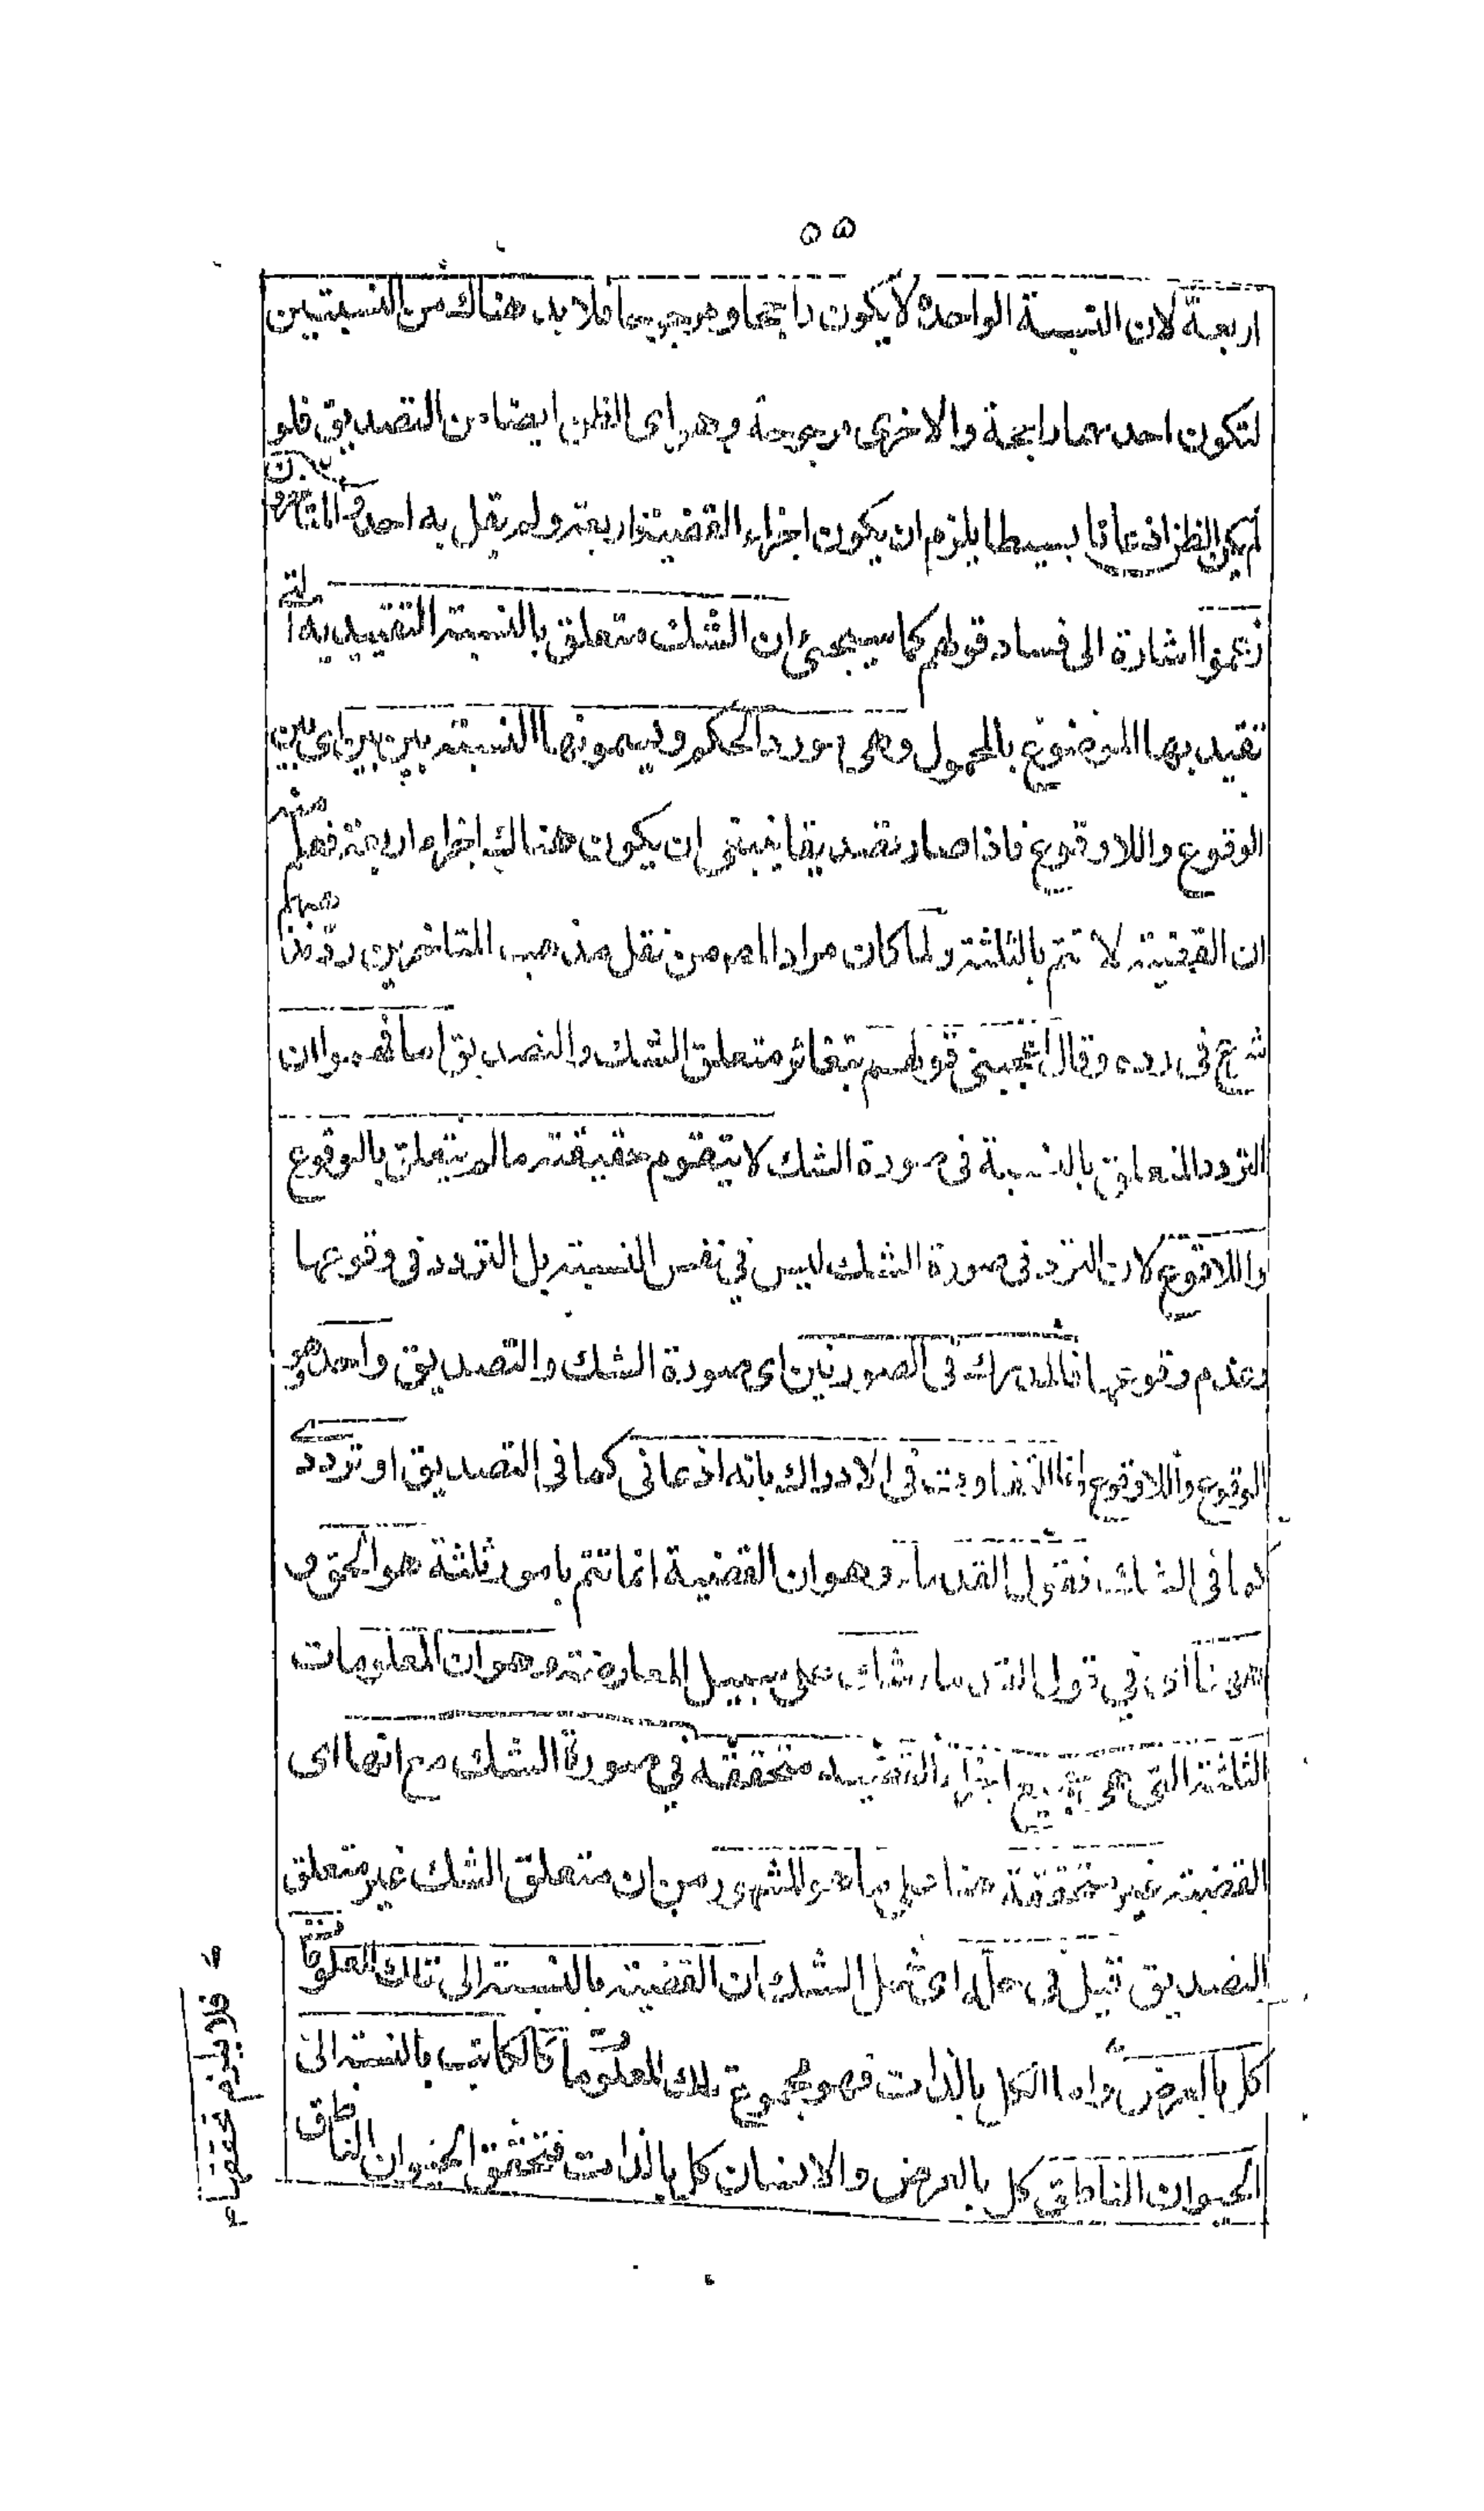 ٥٥
اربعة لان النسبة الواحدة لا يكون راجحا ومرجوحا فلا بد هناك من النسبتين
لتكون احدهما راجحة والاخرى مرجوحة وهو اى الظن ايضا من التصديق فلو
لم يكن الظن اذعانا بسيطا يلزم ان يكون اجزاء القضية اربعة ولم يقل به احد والمتاخرون
زعموا اشارة الى فساد قولهم كما سيجئ ان الشك متعلق بالنسبة التقييدية التى
تقيد بها الموضوع بالمحمول وهى مورد الحكم ويسمونها النسبة بين بين اى بين
الوقوع واللاوقوع فاذا صار تصديقا ينبغى ان يكون هناك اجزاء اربعة فعلم منه
ان القضية لا تتم بالثلثة ولما كان مراد المص من نقل مذهب المتاخرين رد مذهبهم
شرع فى رده وقال اعجبنى قولهم بتغائر متعلق الشك والتصديق اما فهموا ان
التردد المتعلق بالنسبة فى صورة الشك لا يتقوم حقيقته ما لم يتعلق بالوقوع
واللاوقوع لان التردد فى صورة الشك ليس فى نفس النسبة بل التردد فى وقوعها
وعدم وقوعها فالمدرك فى الصورتين اى صورة الشك والتصديق واحد هو
الوقوع واللاوقوع وانما التفاوت فى الادراك بانه اذعانى كما فى التصديق او ترددى
كما فى الشك فقول القدماء وهو ان القضية انما تتم بامور ثلثة هو الحق و
ههنا اى فى قول القدماء شك على سبيل المعارضة وهو ان المعلومات
الثلثة التى هى جميع اجزاء القضية متحققة فى صورة الشك مع انها اى
القضية غير متحققة هذا على ما هو المشهور من ان متعلق الشك غير متعلق
التصديق قيل فى حله اى حل الشك ان القضية بالنسبة الى تلك المعلومات
كل بالعرض واما الكل بالذات فهو مجموع تلك المعلومات كالكاتب بالنسبة الى
الحيوان الناطق كل بالعرض والانسان كل بالذات فتحقق الحيوان الناطق
فلا يلزم تحققها